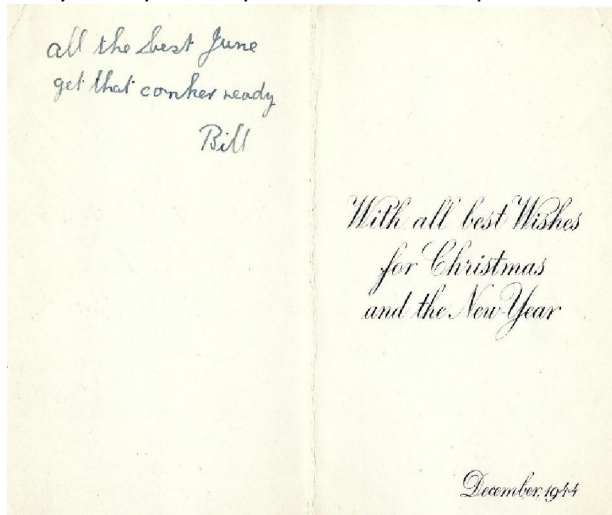 all the best June
get that conker ready
Bill
With all best Wishes
for Christmas
and the New Year
December 1944